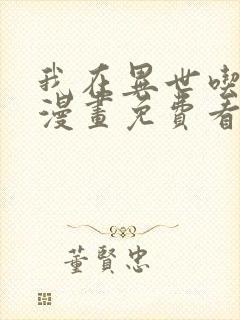 我在異世喫
漫畫免費看
董賢忠